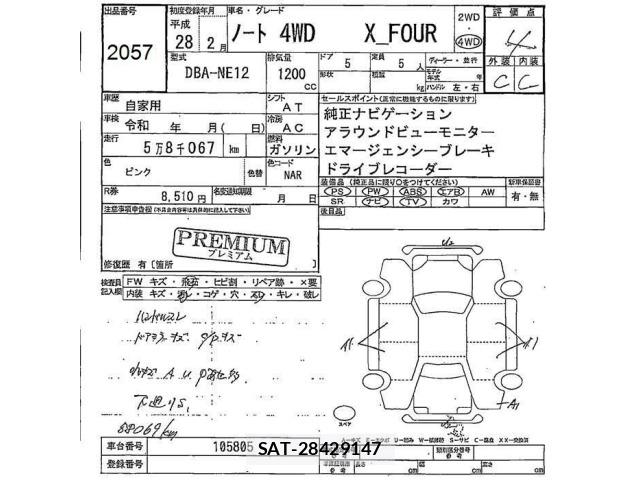 出品番号 初度登録年月 車名・グレード 2WD 評価点
2057 平成 28年 2月 ノート 4WD X_FOUR 4WD 4
型式 排気量 ドア 定員 ディーラー・並行 外装 内装
DBA-NE12 1200 cc 5 5人 形状 積載 kg モデル年式 年 ハンドル 左・右 C C
車歴 自家用 シフト AT セールスポイント(正常に機能するものに限ります)
車検 令和 年 月( 日) 冷房 AC 純正ナビゲーション
アラウンドビューモニター
走行 5万8千067 km 燃料 ガソリン エマージェンシーブレーキ
ドライブレコーダー
色 ピンク 色替 色コード NAR
装備品(純正品に限り○をつけてください) 新車保証書
PS PW ABS エアB AW 有・無
SR ナビ TV カワ
R券 8,510円 名変通知期限 月 日
後日品
注意事項申告欄
PREMIUM
プレミアム
修復歴 有〔箇所
検査員記入欄 FW キズ・飛石・ヒビ割・リペア跡・×要
内装 キズ・汚レ・コゲ・穴・スレ・キレ・破レ
ハンドルスレ
下廻りS.
58069/km
U2
A1
スペア
車台番号 105805
SAT-28429147
登録番号
長さ cm 幅 cm 高さ cm